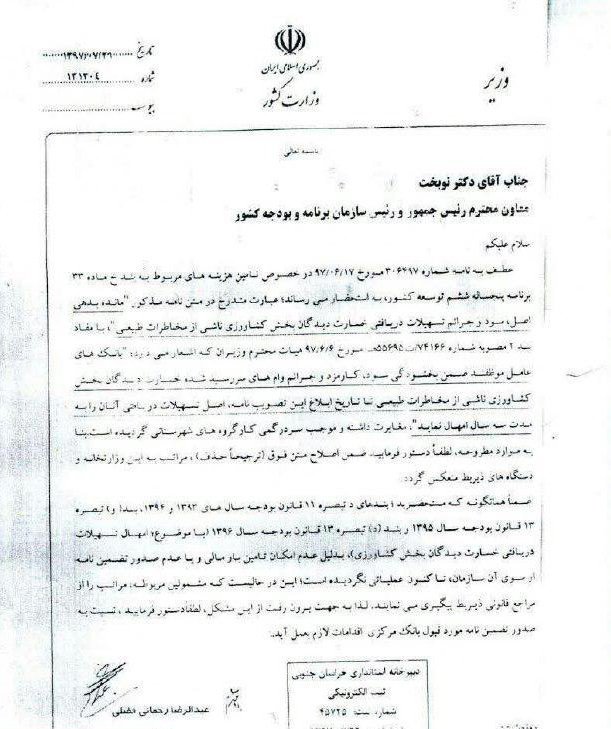 جمهوری اسلامی ایران
وزارت کشور
وزیر
تاریخ ۱۳۹۷/۰۷/۲۱
شماره ۱۲۱۲۰۴
پیوست
باسمه تعالی
جناب آقای دکتر نوبخت
معاون محترم رئیس جمهور و رئیس سازمان برنامه و بودجه کشور
سلام علیکم
عطف به نامه شماره ۳۰۶۴۹۷ مورخ ۹۷/۰۶/۱۷ در خصوص تامین هزینه های مربوط به بند خ ماده ۳۳
برنامه پنجساله ششم توسعه کشور، به استحضار می رساند؛ عبارت مندرج در متن نامه مذکور "مانده بدهی
اصل، سود و جرائم تسهیلات دریافتی خسارت دیدگان بخش کشاورزی ناشی از مخاطرات طبیعی"، با مفاد
بند ۲ مصوبه شماره ۷۴۱۶۶/ت۵۵۶۹۵هـ مورخ ۹۷/۶/۶ هیات محترم وزیران که اشعار می دارد: "بانک های
عامل موظفند ضمن بخشودگی سود، کارمزد و جرائم وام های سررسید شده خسارت دیدگان بخش
کشاورزی ناشی از مخاطرات طبیعی تا تاریخ ابلاغ این تصویب نامه، اصل تسهیلات دریافتی آنان را به
مدت سه سال امهال نمایند"، مغایرت داشته و موجب سردرگمی کارگروه های شهرستانی گردیده است. بنا
به موارد مطروحه، لطفاً دستور فرمایید، ضمن اصلاح متن فوق (ترجیحاً حذف)، مراتب به این وزارتخانه و
دستگاه های ذیربط منعکس گردد.
ضمناً همانگونه که مستحضرید؛ بندهای د تبصره ۱۱ قانون بودجه سال های ۱۳۹۳ و ۱۳۹۴، بند و تبصره
۱۳ قانون بودجه سال ۱۳۹۵ و بند (د) تبصره ۱۳ قانون بودجه سال ۱۳۹۶ (با موضوع؛ امهال تسهیلات
دریافتی خسارت دیدگان بخش کشاورزی)، بدلیل عدم امکان تامین بار مالی و یا عدم صدور تضمین نامه
از سوی آن سازمان، تا کنون عملیاتی نگردیده است؛ این در حالیست که مشمولین مربوطه، مراتب را از
مراجع قانونی ذیربط پیگیری می نمایند. لذا به جهت برون رفت از این مشکل، لطفا دستور فرمایید، نسبت به
صدور تضمین نامه مورد قبول بانک مرکزی اقدامات لازم بعمل آید.
عبدالرضا رحمانی فضلی
دبیرخانه استانداری خراسان جنوبی
ثبت الکترونیکی
شماره ثبت: ۴۵۷۲۵